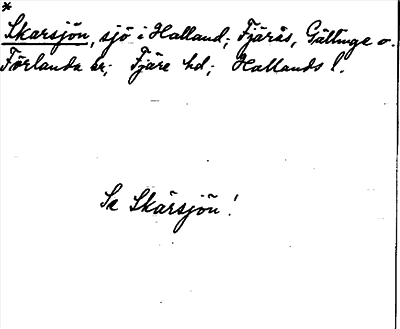 *
Skarsjön, sjö i Halland; Fjärås, Gällinge o.
Förlanda sr; Fjäre hd; Hallands l.
Se Skärsjön!